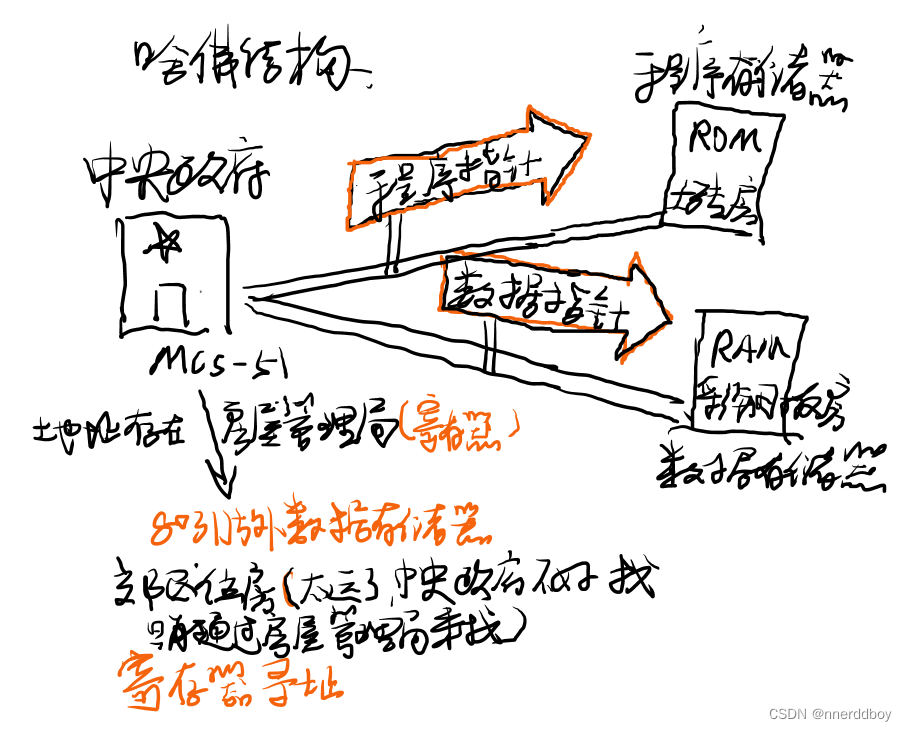 哈佛结构
程序存储器
ROM
砖房
中央政府
程序指针
数据指针
MCS-51
RAM
数据存储器
地址存在 房屋管理局(寄存器)
8031片外数据存储器
郊区住房(太远了,中央政府不好找
只有通过房屋管理局来找)
寄存器寻址
CSDN @nnerddboy